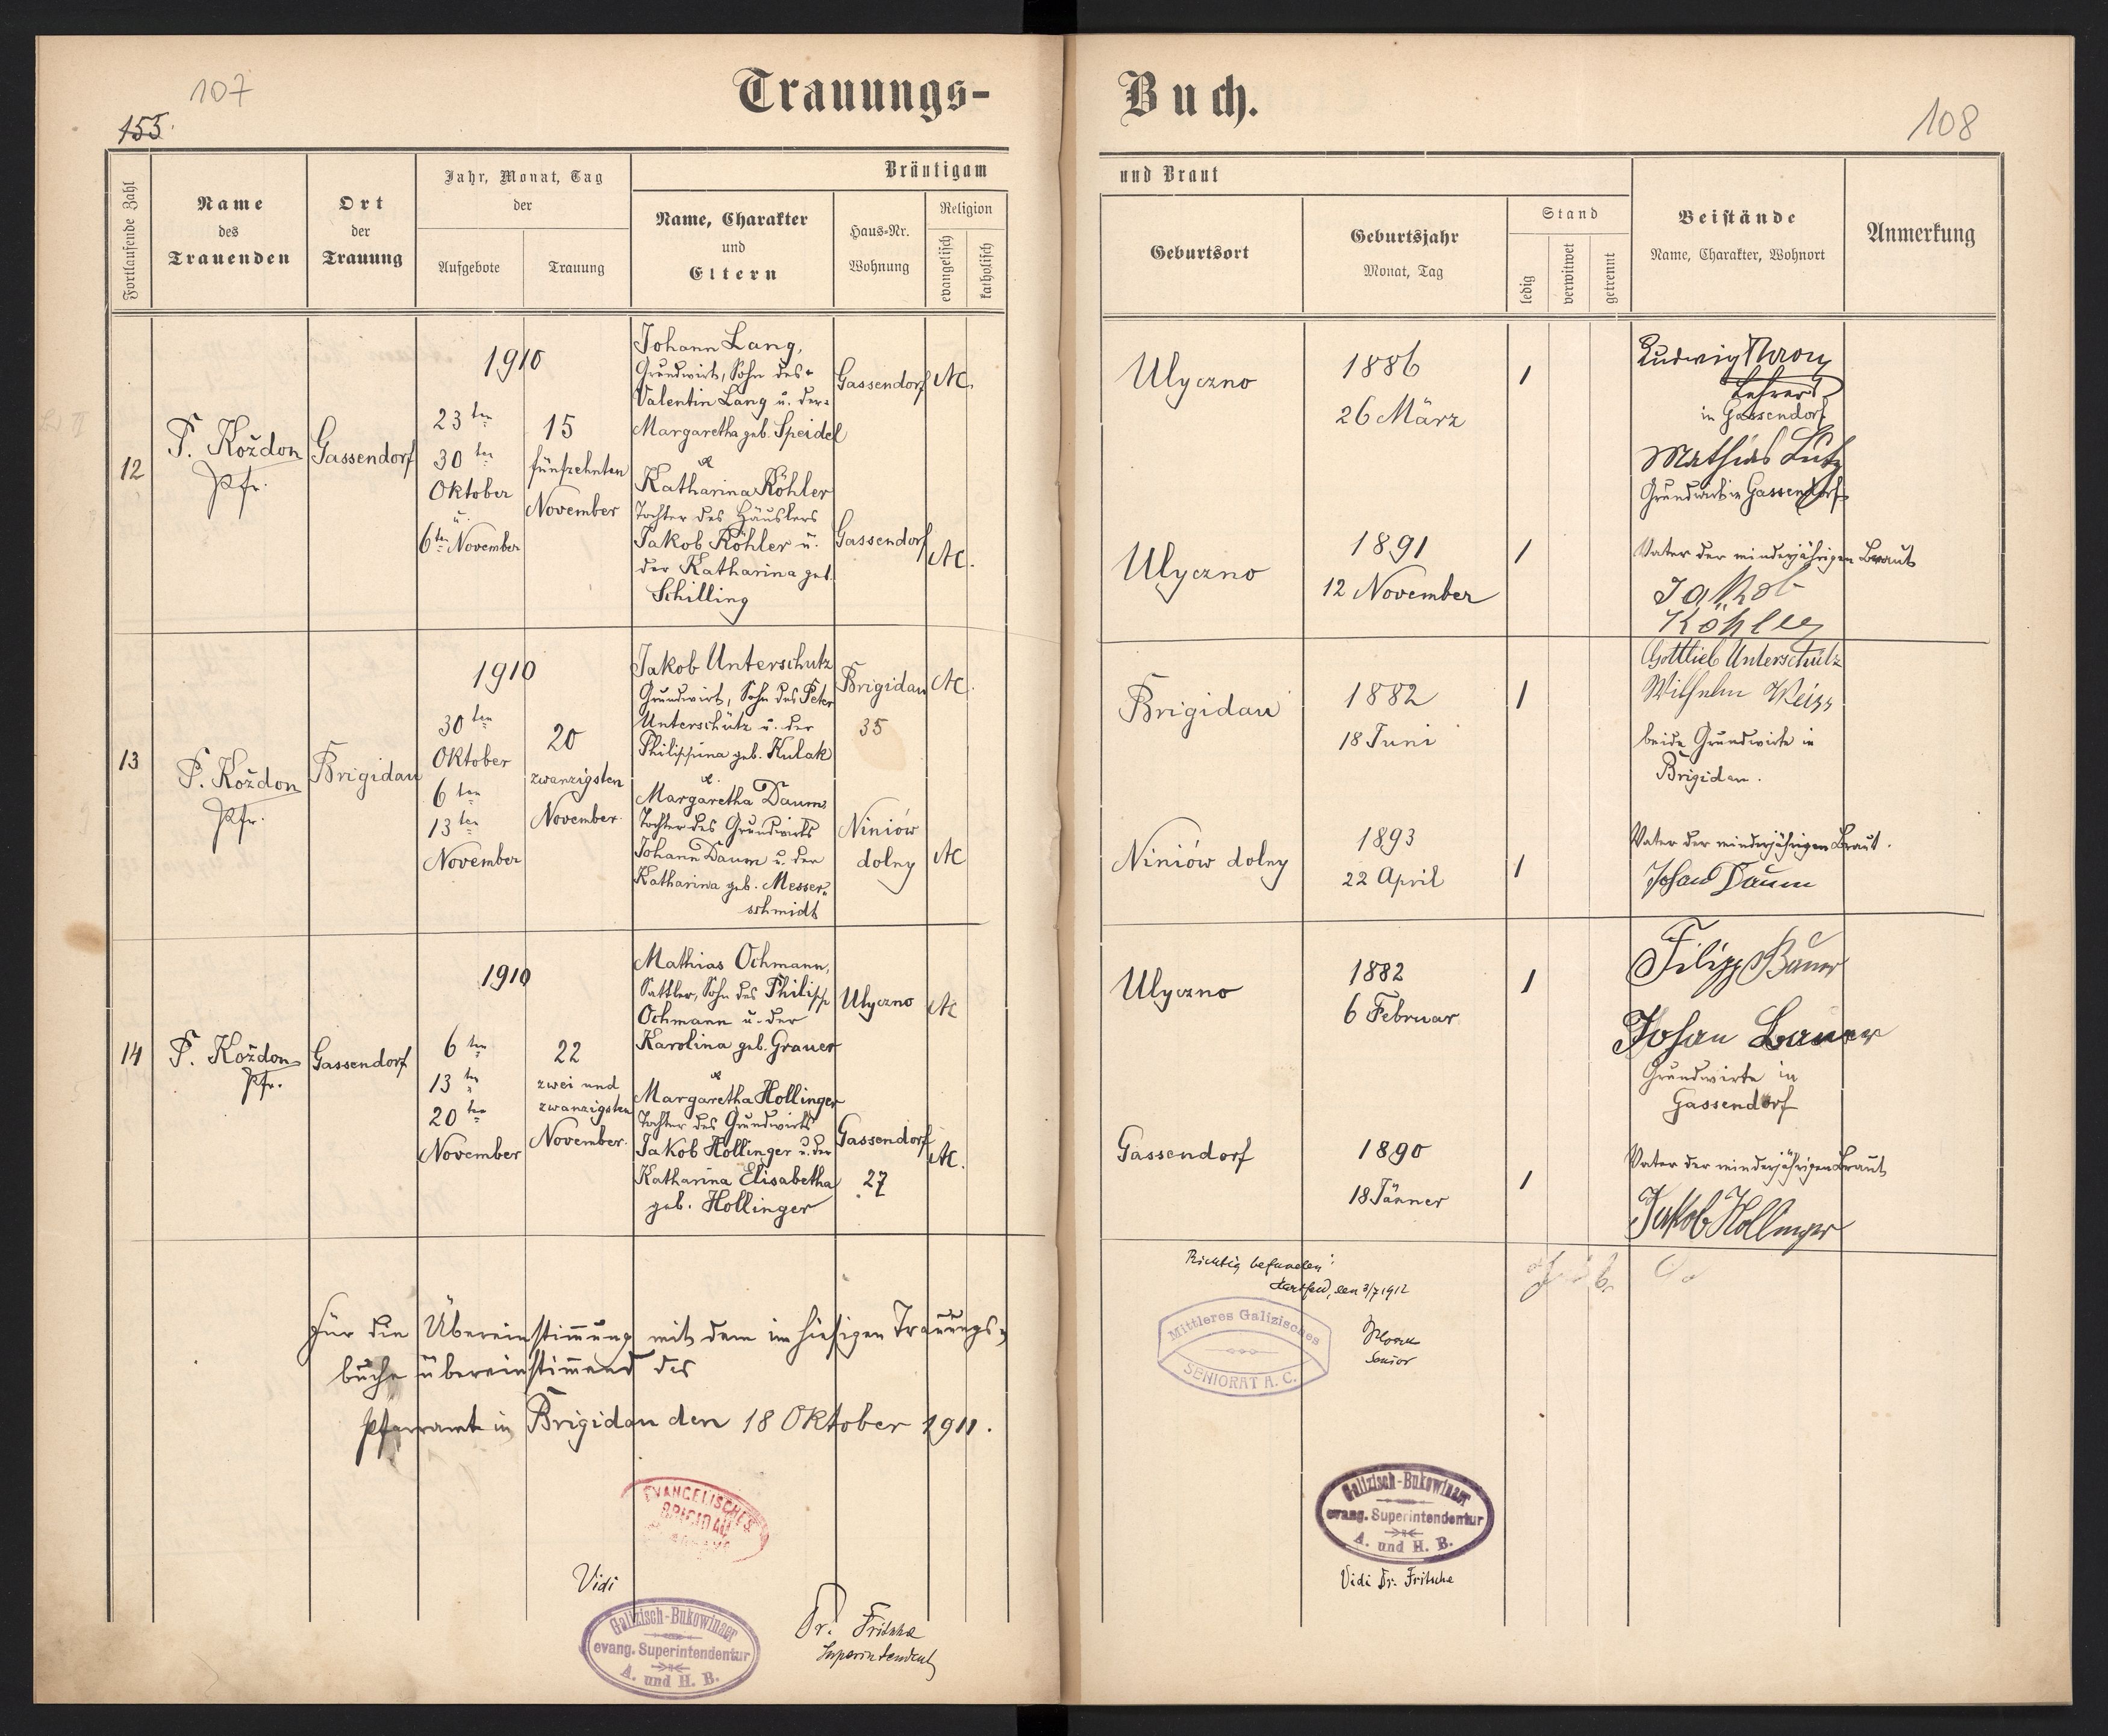 107
155.
Trauungs-
Fortlaufende Zahl
Name
des
Trauenden
Ort
der
Trauung
Jahr, Monat, Tag
der
Aufgebote
Trauung
Bräutigam
Name, Charakter
und
Eltern
Haus-Nr.
Wohnung
Religion
evangelisch
katholisch
12
P. Koždon
Pfr.
Gassendorf
1910
23 ten
30 ten
Oktober
u.
6 ten November
15
fünfzehnten
November
Johann Lang,
Grundwirt, Sohn des
Valentin Lang u. der
Margaretha geb. Speidel
&
Katharina Köhler
Tochter des Häuslers
Jakob Köhler u.
der Katharina geb.
Schilling
Gassendorf
AC.
Gassendorf
AC.
13
P. Koždon
Pfr.
Brigidau
1910
30 ten
Oktober
6 ten
13 ten
November
20
zwanzigsten
November
Jakob Unterschütz
Grundwirt, Sohn des Peter
Unterschütz u. der
Philippina geb. Kulak
&
Margaretha Daum
Tochter des Grundwirts
Johann Daum u. der
Katharina geb. Messer-
schmidt
Brigidau
35
AC.
Niniów
dolny
AC
14
P. Koždon
Pfr.
Gassendorf
1910
6 ten
13 ten
20 ten
November
22
zwei und
zwanzigsten
November
Mathias Ochmann,
Sattler, Sohn des Philipp
Ochmann u. der
Karolina geb. Grauer
&
Margaretha Hollinger
Tochter des Grundwirts
Jakob Hollinger u. der
Katharina Elisabetha
geb. Hollinger
Ulyczno
AC
Gassendorf
27
AC.
Für die Übereinstimmung mit dem im hiesigen Trauungs-
buche übereinstimmend des
Pfarramt in Brigidau den 18 Oktober 1911.
EVANGELISCHES
BRIGIDAU
Vidi
Galizisch-Bukowinaer
evang. Superintendentur
A. und H. B.
Dr. Fritsche
Superintendent
Buch.
108
und Braut
Geburtsort
Geburtsjahr
Monat, Tag
Stand
ledig
verwitwet
getrennt
Beistände
Name, Charakter, Wohnort
Anmerkung
Ulyczno
1886
26 März
1
Ludwig
Lehrer
in Gassendorf
Mathias Lutz
Grundwirt in Gassendorf
Ulyczno
1891
12 November
1
Vater der minderjährigen Braut
Jakob
Köhler
Brigidau
1882
18 Juni
1
Gottlieb Unterschütz
Wilhelm Weiss
beide Grundwirte in
Brigidau.
Niniów dolny
1893
22 April
1
Vater der minderjährigen Braut.
Johan Daum
Ulyczno
1882
6 Februar
1
Filipp Bauer
Johan Bauer
Grundwirte in
Gassendorf
Gassendorf
1890
18 Jänner
1
Vater der minderjährigen Braut
Jakob Hollinger
Richtig befunden:
den 3/7 1912
Mittleres Galizisches
SENIORAT A. C.
Senior
Galizisch-Bukowinaer
evang. Superintendentur
A. und H. B.
Vidi Dr. Fritsche